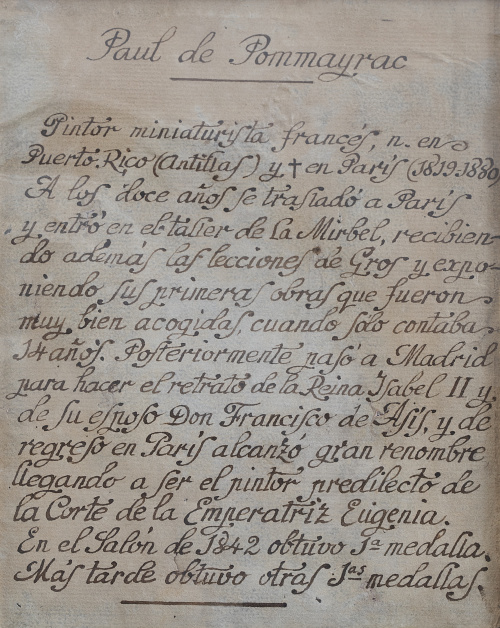 Paul de Pommayrac
Pintor miniaturista francés, n. en
Puerto-Rico (Antillas) y † en París (1819-1880)
A los doce años se trasladó a París
y entró en el taller de la Mirbel, recibien-
do además las lecciones de Gros y expo-
niendo sus primeras obras que fueron
muy bien acogidas, cuando sólo contaba
14 años. Posteriormente pasó a Madrid
para hacer el retrato de la Reina Isabel II y
de su esposo Don Francisco de Asís, y de
regreso en París alcanzó gran renombre
llegando a ser el pintor predilecto de
la Corte de la Emperatriz Eugenia.
En el Salón de 1842 obtuvo 1ª medalla.
Más tarde obtuvo otras 1as medallas.